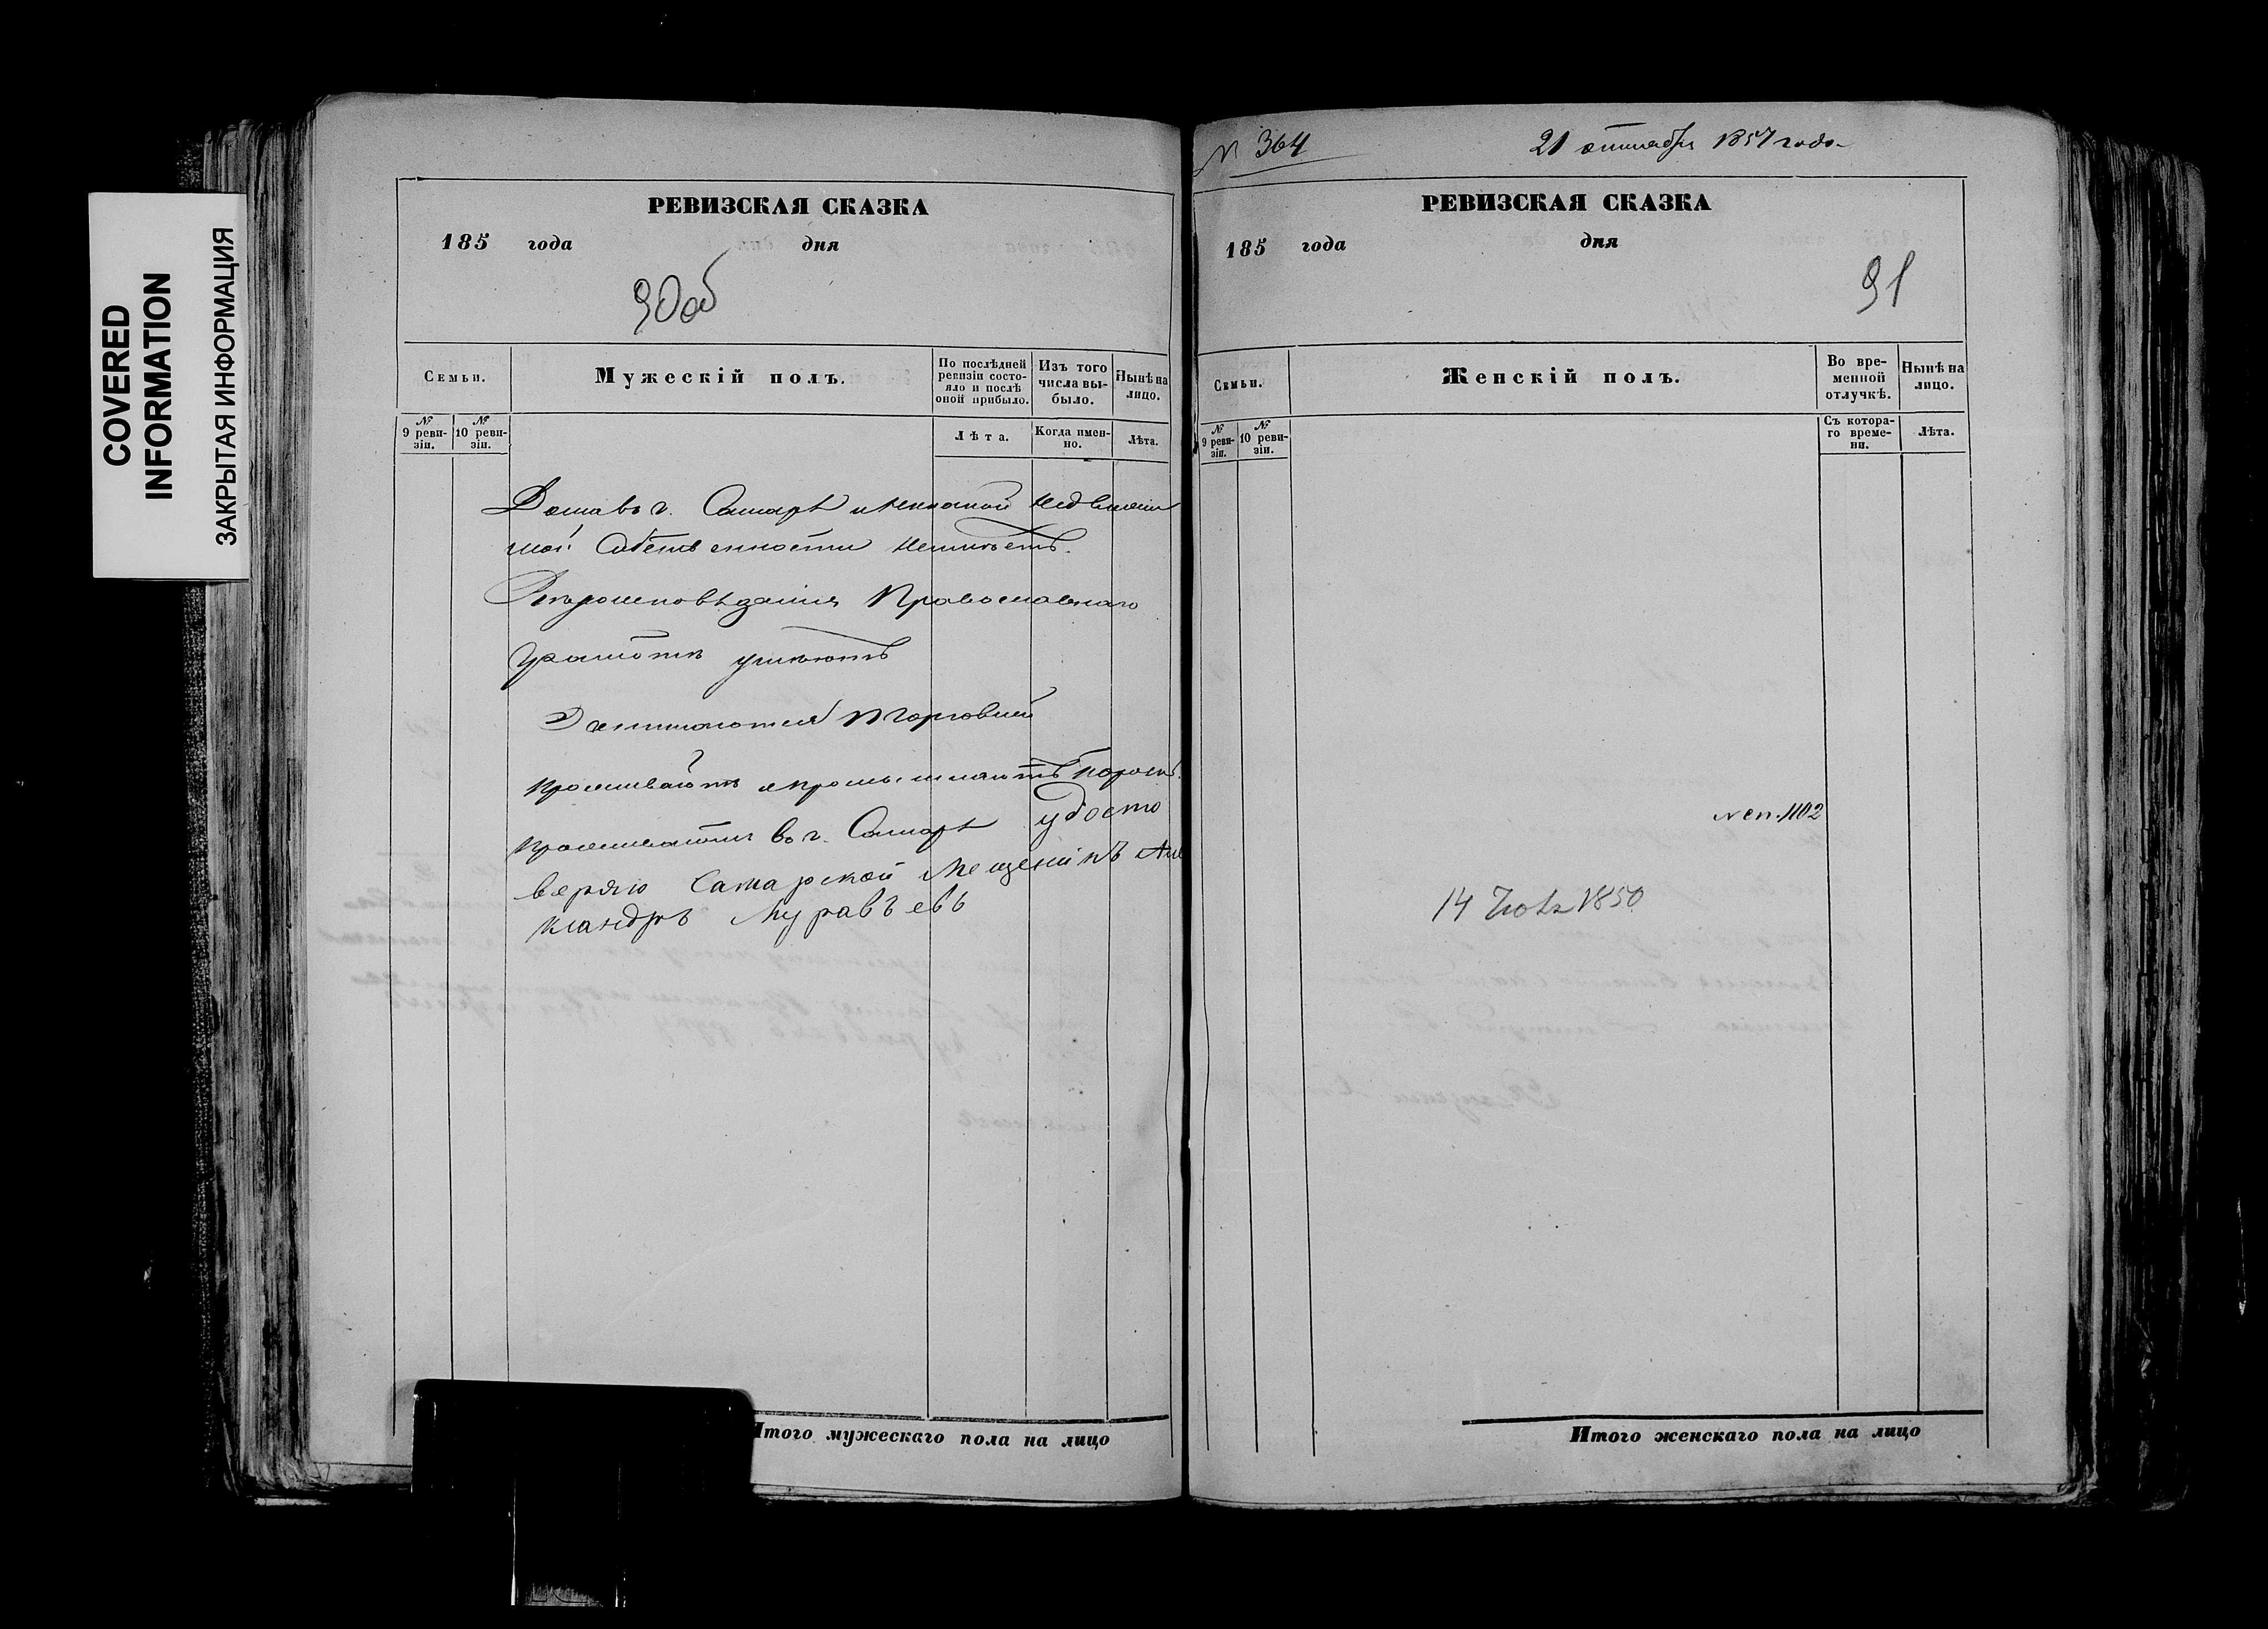 COVERED
INFORMATION
ЗАКРЫТАЯ ИНФОРМАЦИЯ
РЕВИЗСКАЯ СКАЗКА
185 года дня
90об
Семьи.
Мужескій полъ.
По послѣдней ревизіи состояло и послѣ оной прибыло.
Изъ того числа выбыло.
Нынѣ на лицо.
№ 9 ревизіи.
№ 10 ревизіи.
Лѣта.
Когда именно.
Лѣта.
Дома въ г. Самарѣ и никакой недвижи
мой собственности неимѣетъ.
Вѣроисповѣданія Православнаго
Грамотѣ умѣютъ
Занимаются торговлей
проживаютъ и промышляютъ
проживаютъ въ г. Самарѣ удосто
веряю Самарской Мещенинъ Але
ксандръ Муравъевъ
Итого мужескаго пола на лицо
№ 364
21 октября 1857 года
РЕВИЗСКАЯ СКАЗКА
185 года дня
91
Семьи.
Женскій полъ.
Во временной отлучкѣ.
Нынѣ на лицо.
№ 9 ревизіи.
№ 10 ревизіи.
Съ котораго времени.
Лѣта.
1102
14 1850
Итого женскаго пола на лицо